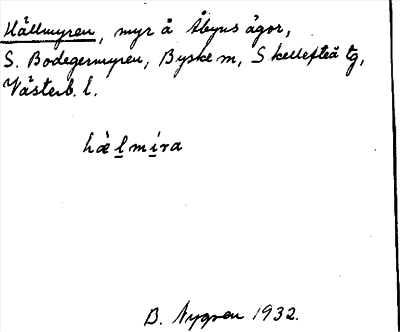 Hällmyren, myr å Åbyns ägor,
S. Bodegermyren, Byske m, Skellefteå tg,
Västerb. l.
hæ̀l̲mi̲ra
B. Nygren 1932.